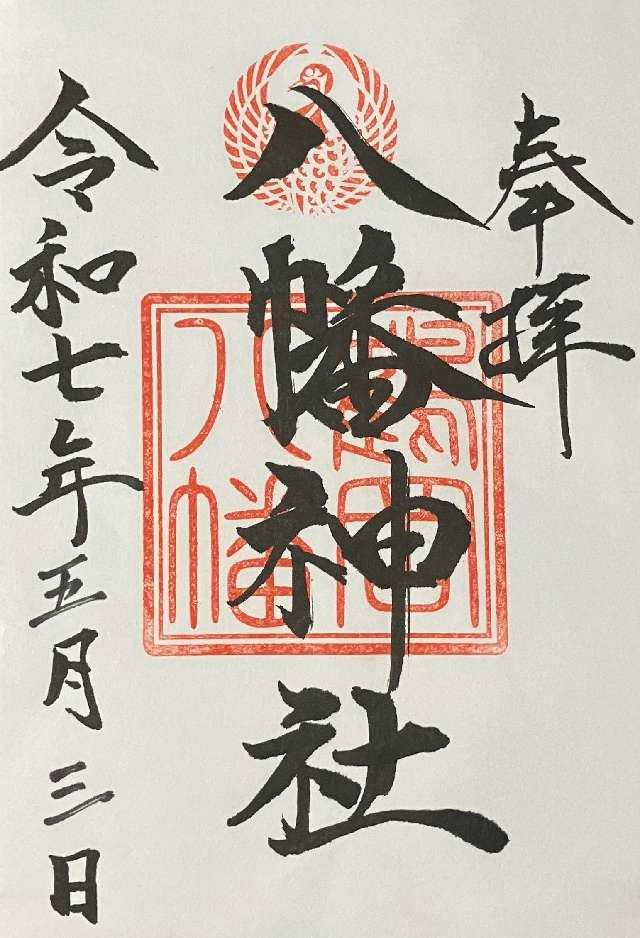 奉拝
八幡神社
令和七年五月三日
八幡